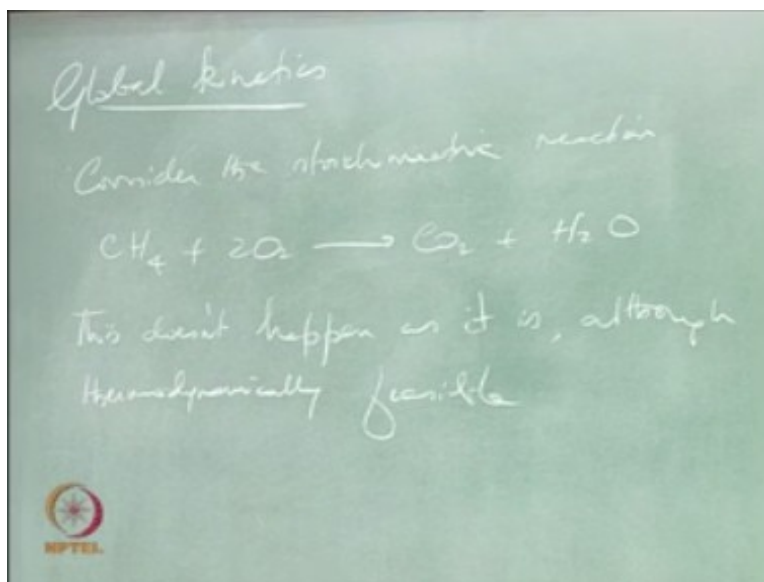 Global kinetics
Consider the stoichiometric reaction
CH₄ + 2O₂ ⟶ CO₂ + H₂O
This doesn't happen as it is, although
thermodynamically feasible
NPTEL